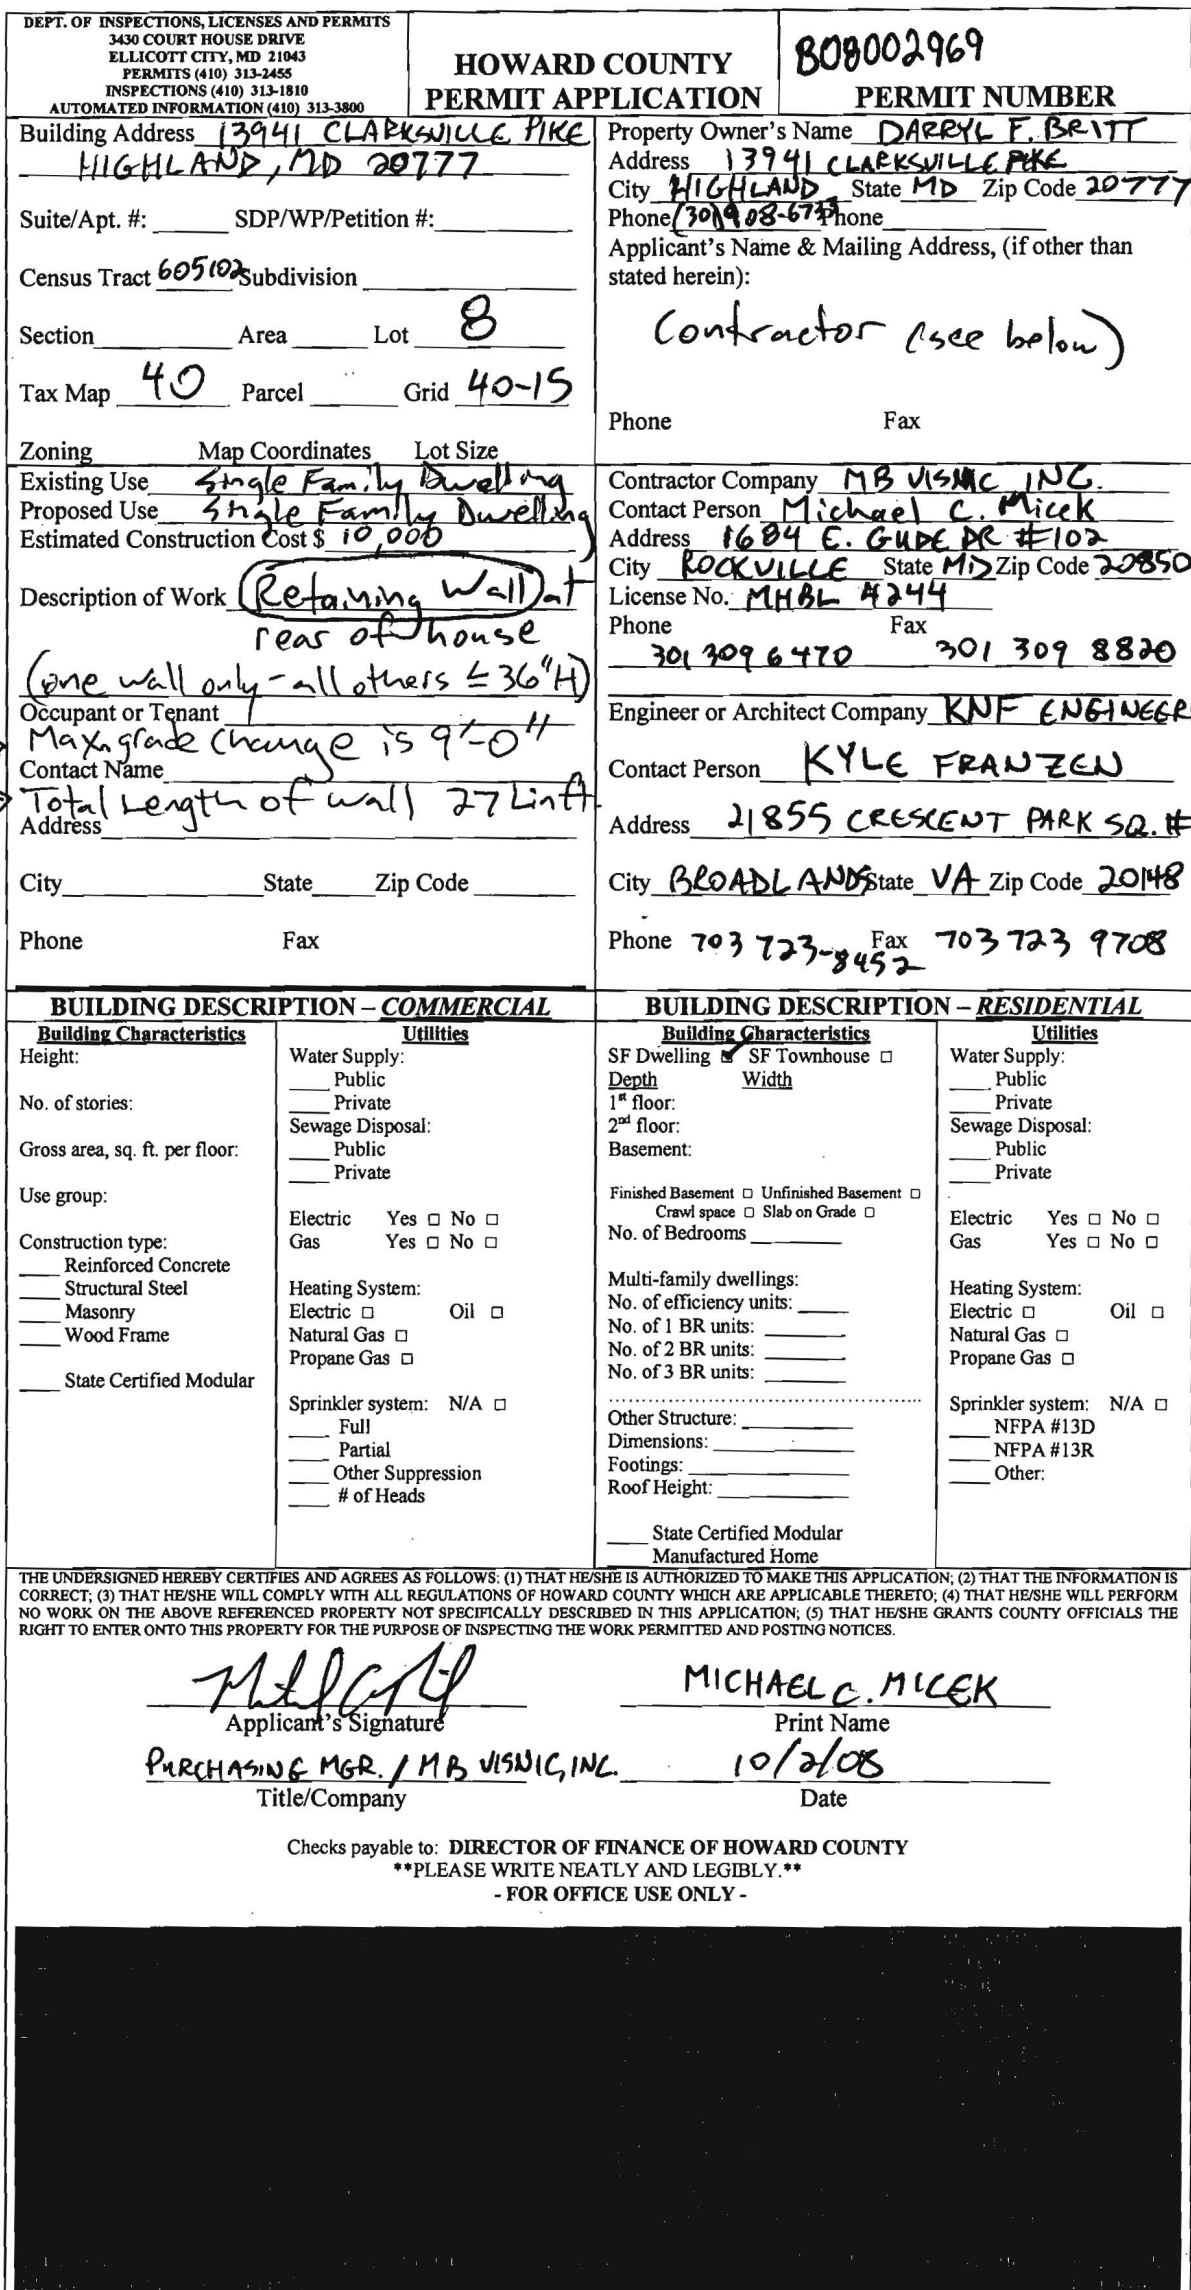 DEPT. OF INSPECTIONS, LICENSES AND PERMITS
3430 COURT HOUSE DRIVE
ELLICOTT CITY, MD 21043
PERMITS (410) 313-2455
INSPECTIONS (410) 313-1810
AUTOMATED INFORMATION (410) 313-3800
HOWARD COUNTY
PERMIT APPLICATION
B08002969
PERMIT NUMBER
Building Address 13941 CLARKSVILLE PIKE
HIGHLAND, MD 20777
Suite/Apt. #: SDP/WP/Petition #:
Census Tract 605102 Subdivision
Section Area Lot 8
Tax Map 40 Parcel Grid 40-15
Zoning Map Coordinates Lot Size
Property Owner's Name DARRYL F. BRITT
Address 13941 CLARKSVILLE PIKE
City HIGHLAND State MD Zip Code 20777
Phone (301) 908-67 Phone
Applicant's Name & Mailing Address, (if other than
stated herein):
Contractor (see below)
Phone Fax
Existing Use Single Family Dwelling
Proposed Use Single Family Dwelling
Estimated Construction Cost $ 10,000
Description of Work Retaining Wall at
rear of house
(one wall only - all others ≤ 36"H)
Occupant or Tenant
Max grade change is 9'-0"
Contact Name
Total Length of wall 27 Lin ft.
Address
City State Zip Code
Phone Fax
Contractor Company MB VISNIC INC.
Contact Person Michael C. Micek
Address 1684 E. GUDE DR #102
City ROCKVILLE State MD Zip Code 20850
License No. MHBL #244
Phone Fax
301 309 6470 301 309 8820
Engineer or Architect Company KNF ENGINEER
Contact Person KYLE FRANZEN
Address 21855 CRESCENT PARK SQ. #
City BROADLANDS State VA Zip Code 20148
Phone 703 723-8452 Fax 703 723 9708
BUILDING DESCRIPTION – COMMERCIAL
Building Characteristics
Height:
No. of stories:
Gross area, sq. ft. per floor:
Use group:
Construction type:
Reinforced Concrete
Structural Steel
Masonry
Wood Frame
State Certified Modular
Utilities
Water Supply:
Public
Private
Sewage Disposal:
Public
Private
Electric Yes □ No □
Gas Yes □ No □
Heating System:
Electric □ Oil □
Natural Gas □
Propane Gas □
Sprinkler system: N/A □
Full
Partial
Other Suppression
# of Heads
BUILDING DESCRIPTION – RESIDENTIAL
Building Characteristics
SF Dwelling ☑ SF Townhouse □
Depth Width
1st floor:
2nd floor:
Basement:
Finished Basement □ Unfinished Basement □
Crawl space □ Slab on Grade □
No. of Bedrooms
Multi-family dwellings:
No. of efficiency units:
No. of 1 BR units:
No. of 2 BR units:
No. of 3 BR units:
Other Structure:
Dimensions:
Footings:
Roof Height:
State Certified Modular
Manufactured Home
Utilities
Water Supply:
Public
Private
Sewage Disposal:
Public
Private
Electric Yes □ No □
Gas Yes □ No □
Heating System:
Electric □ Oil □
Natural Gas □
Propane Gas □
Sprinkler system: N/A □
NFPA #13D
NFPA #13R
Other:
THE UNDERSIGNED HEREBY CERTIFIES AND AGREES AS FOLLOWS: (1) THAT HE/SHE IS AUTHORIZED TO MAKE THIS APPLICATION; (2) THAT THE INFORMATION IS
CORRECT; (3) THAT HE/SHE WILL COMPLY WITH ALL REGULATIONS OF HOWARD COUNTY WHICH ARE APPLICABLE THERETO; (4) THAT HE/SHE WILL PERFORM
NO WORK ON THE ABOVE REFERENCED PROPERTY NOT SPECIFICALLY DESCRIBED IN THIS APPLICATION; (5) THAT HE/SHE GRANTS COUNTY OFFICIALS THE
RIGHT TO ENTER ONTO THIS PROPERTY FOR THE PURPOSE OF INSPECTING THE WORK PERMITTED AND POSTING NOTICES.
Applicant's Signature
MICHAEL C. MICEK
Print Name
PURCHASING MGR. / MB VISNIC, INC.
Title/Company
10/2/08
Date
Checks payable to: DIRECTOR OF FINANCE OF HOWARD COUNTY
**PLEASE WRITE NEATLY AND LEGIBLY.**
- FOR OFFICE USE ONLY -